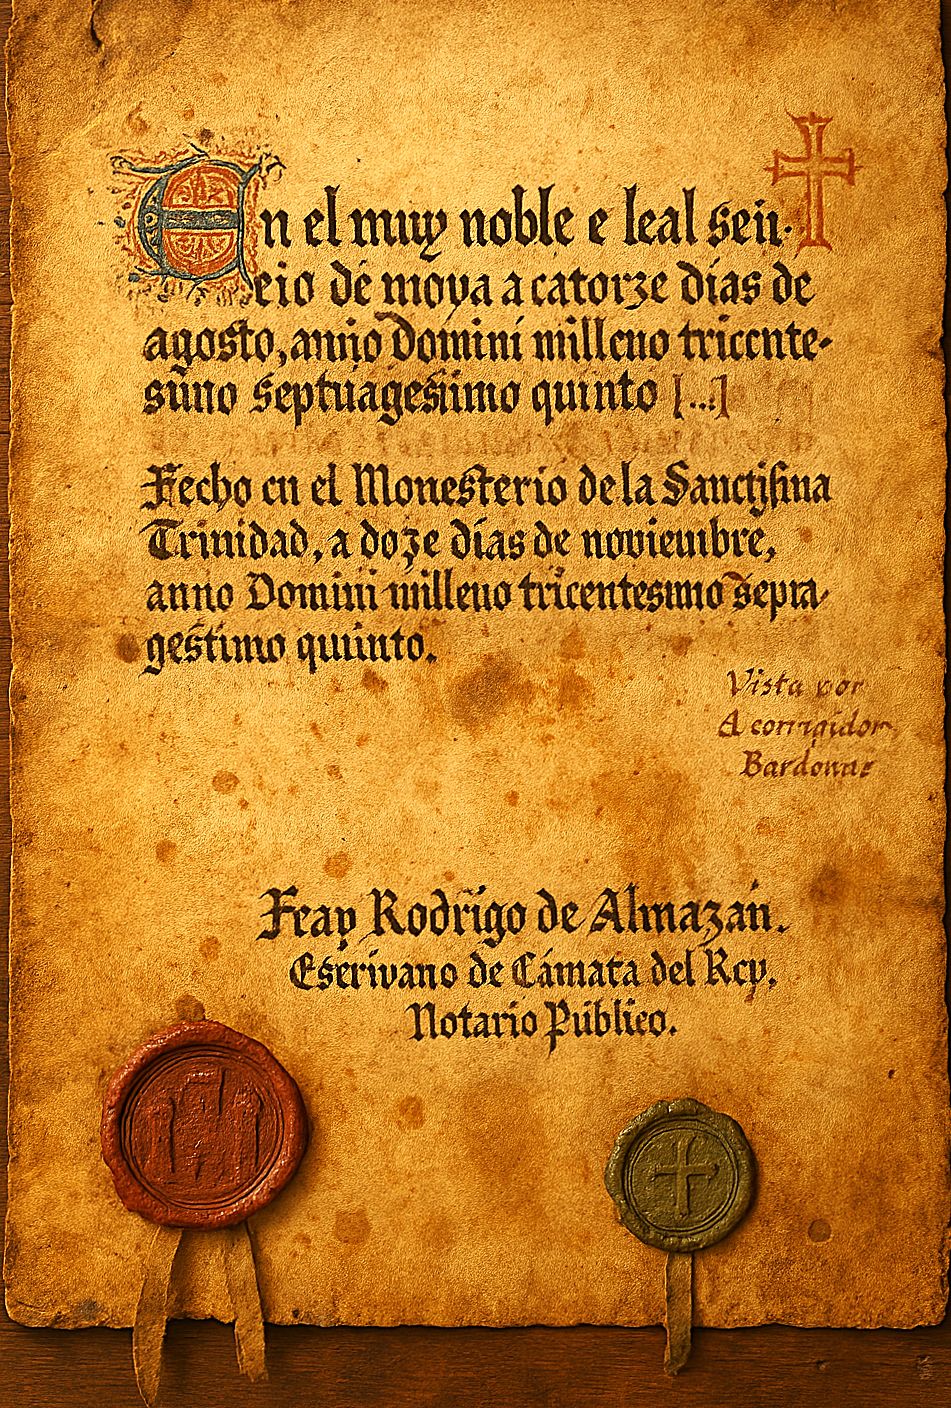 En el muy noble e leal señ-
erio de moya a catorze días de
agosto, annio Domini milleno tricente-
simo septuagesimo quinto [...]
Fecho en el Monesterio de la Sanctissima
Trinidad, a doze días de noviembre,
anno Domini milleno tricentesimo septa-
gestimo quinto.
Vista por
A corrigidor
Bardonae
Fray Rodrigo de Almazán.
Escrivano de Cámata del Rey.
Notario Público.